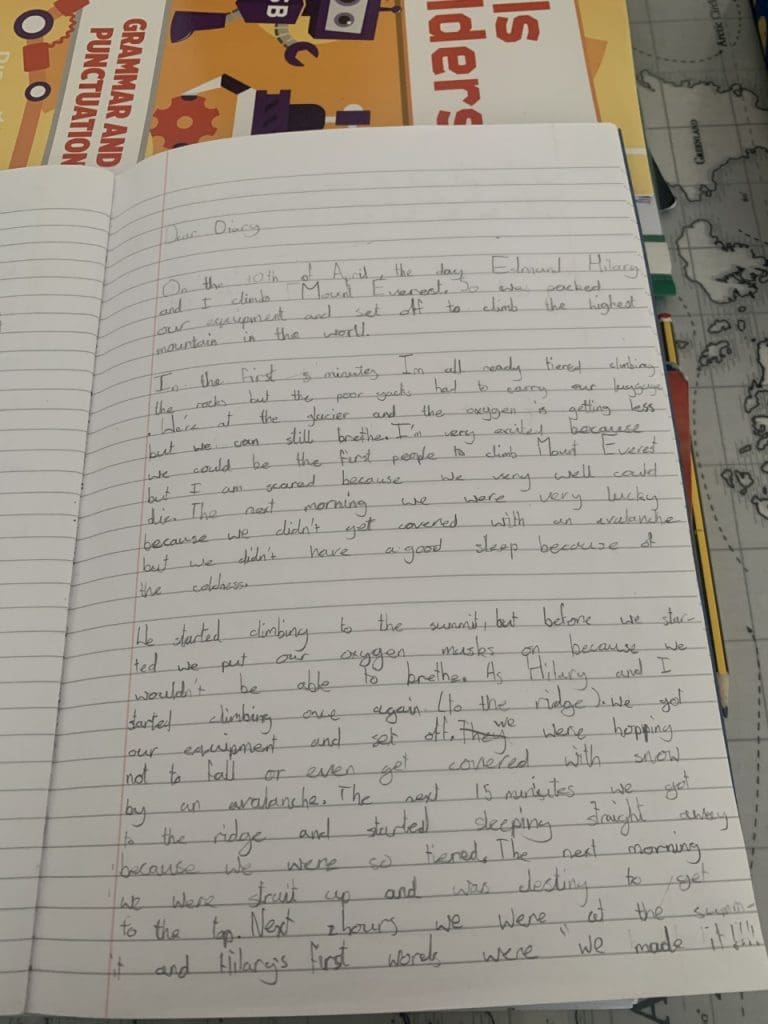 GRAMMAR AND
PUNCTUATION
SB
ls
lders
Arctic Circ
GREENLAND
Dear Diary
On the 10th of April, the day Edmund Hilary
and I climb Mount Everest. So we packed
our equipment and set off to climb the highest
mountain in the world.
In the first 5 minutes I'm all ready tiered climbing
the rocks but the poor yacks had to carry our luggage
. We're at the glacier and the oxygen is getting less
but we can still brethe. I'm very excited because
we could be the first people to climb Mount Everest
but I am scared because we very well could
die. The next morning we were very lucky
because we didn't get covered with an avalanche
but we didn't have a good sleep because of
the coldness.
We started climbing to the summit, but before we star-
ted we put our oxygen masks on because we
wouldn't be able to brethe. As Hilary and I
started climbing once again (to the ridge). We got
our equipment and set off. They we were hopping
not to fall or even get covered with snow
by an avalanche. The next 15 minuites we got
to the ridge and started sleeping straight away
because we were so tiered. The next morning
we were strait up and was to get
to the top. Next 2hours we were at the summ-
it and Hilary's first words were "we made it!!!!